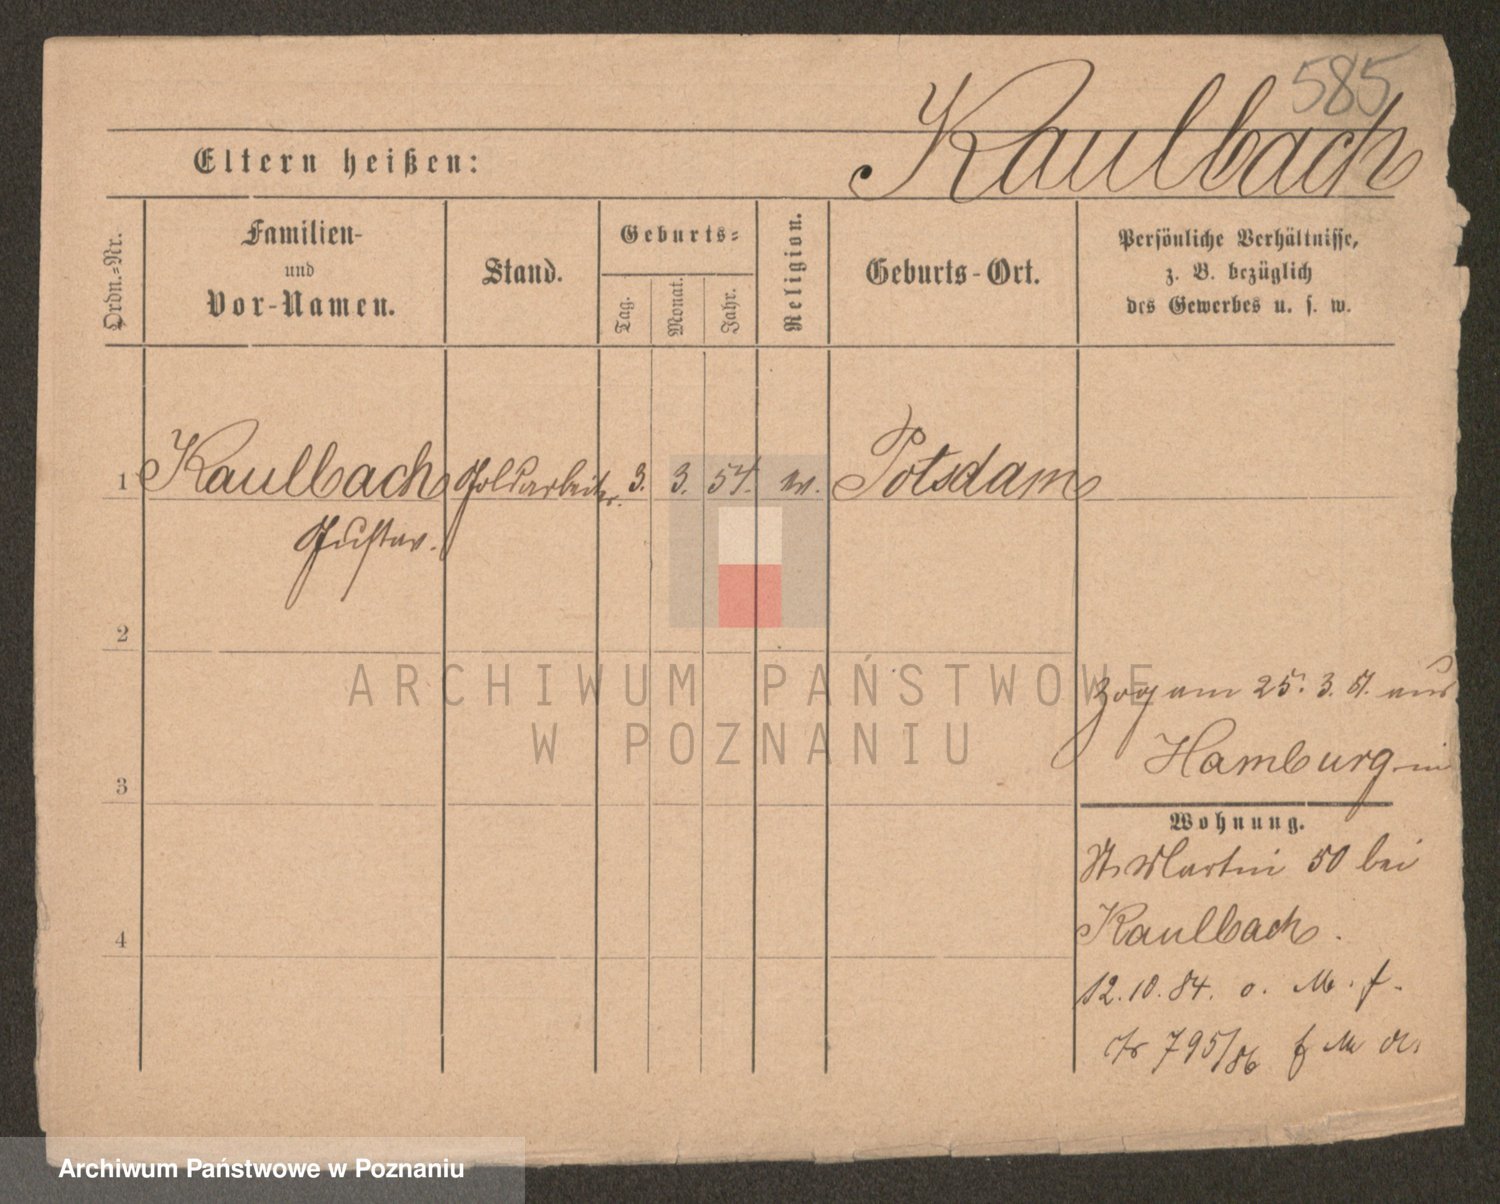 585
Kaulbach
Eltern heißen:
Ordn.-Nr.
Familien-
und
Vor-Namen.
Stand.
Geburts-
Tag.
Monat.
Jahr.
Religion.
Geburts-Ort.
Persönliche Verhältnisse,
z. B. bezüglich
des Gewerbes u. s. w.
1 Kaulbach Goldarbeiter. 3. 3. 54. Potsdam
Gustav.
2
zog am 25. 3. aus
Hamburg
3
Wohnung.
St. Martin 50 bei
Kaulbach.
4
12. 10. 84. o. M. f.
795/86
ARCHIWUM PAŃSTWOWE
W POZNANIU
Archiwum Państwowe w Poznaniu